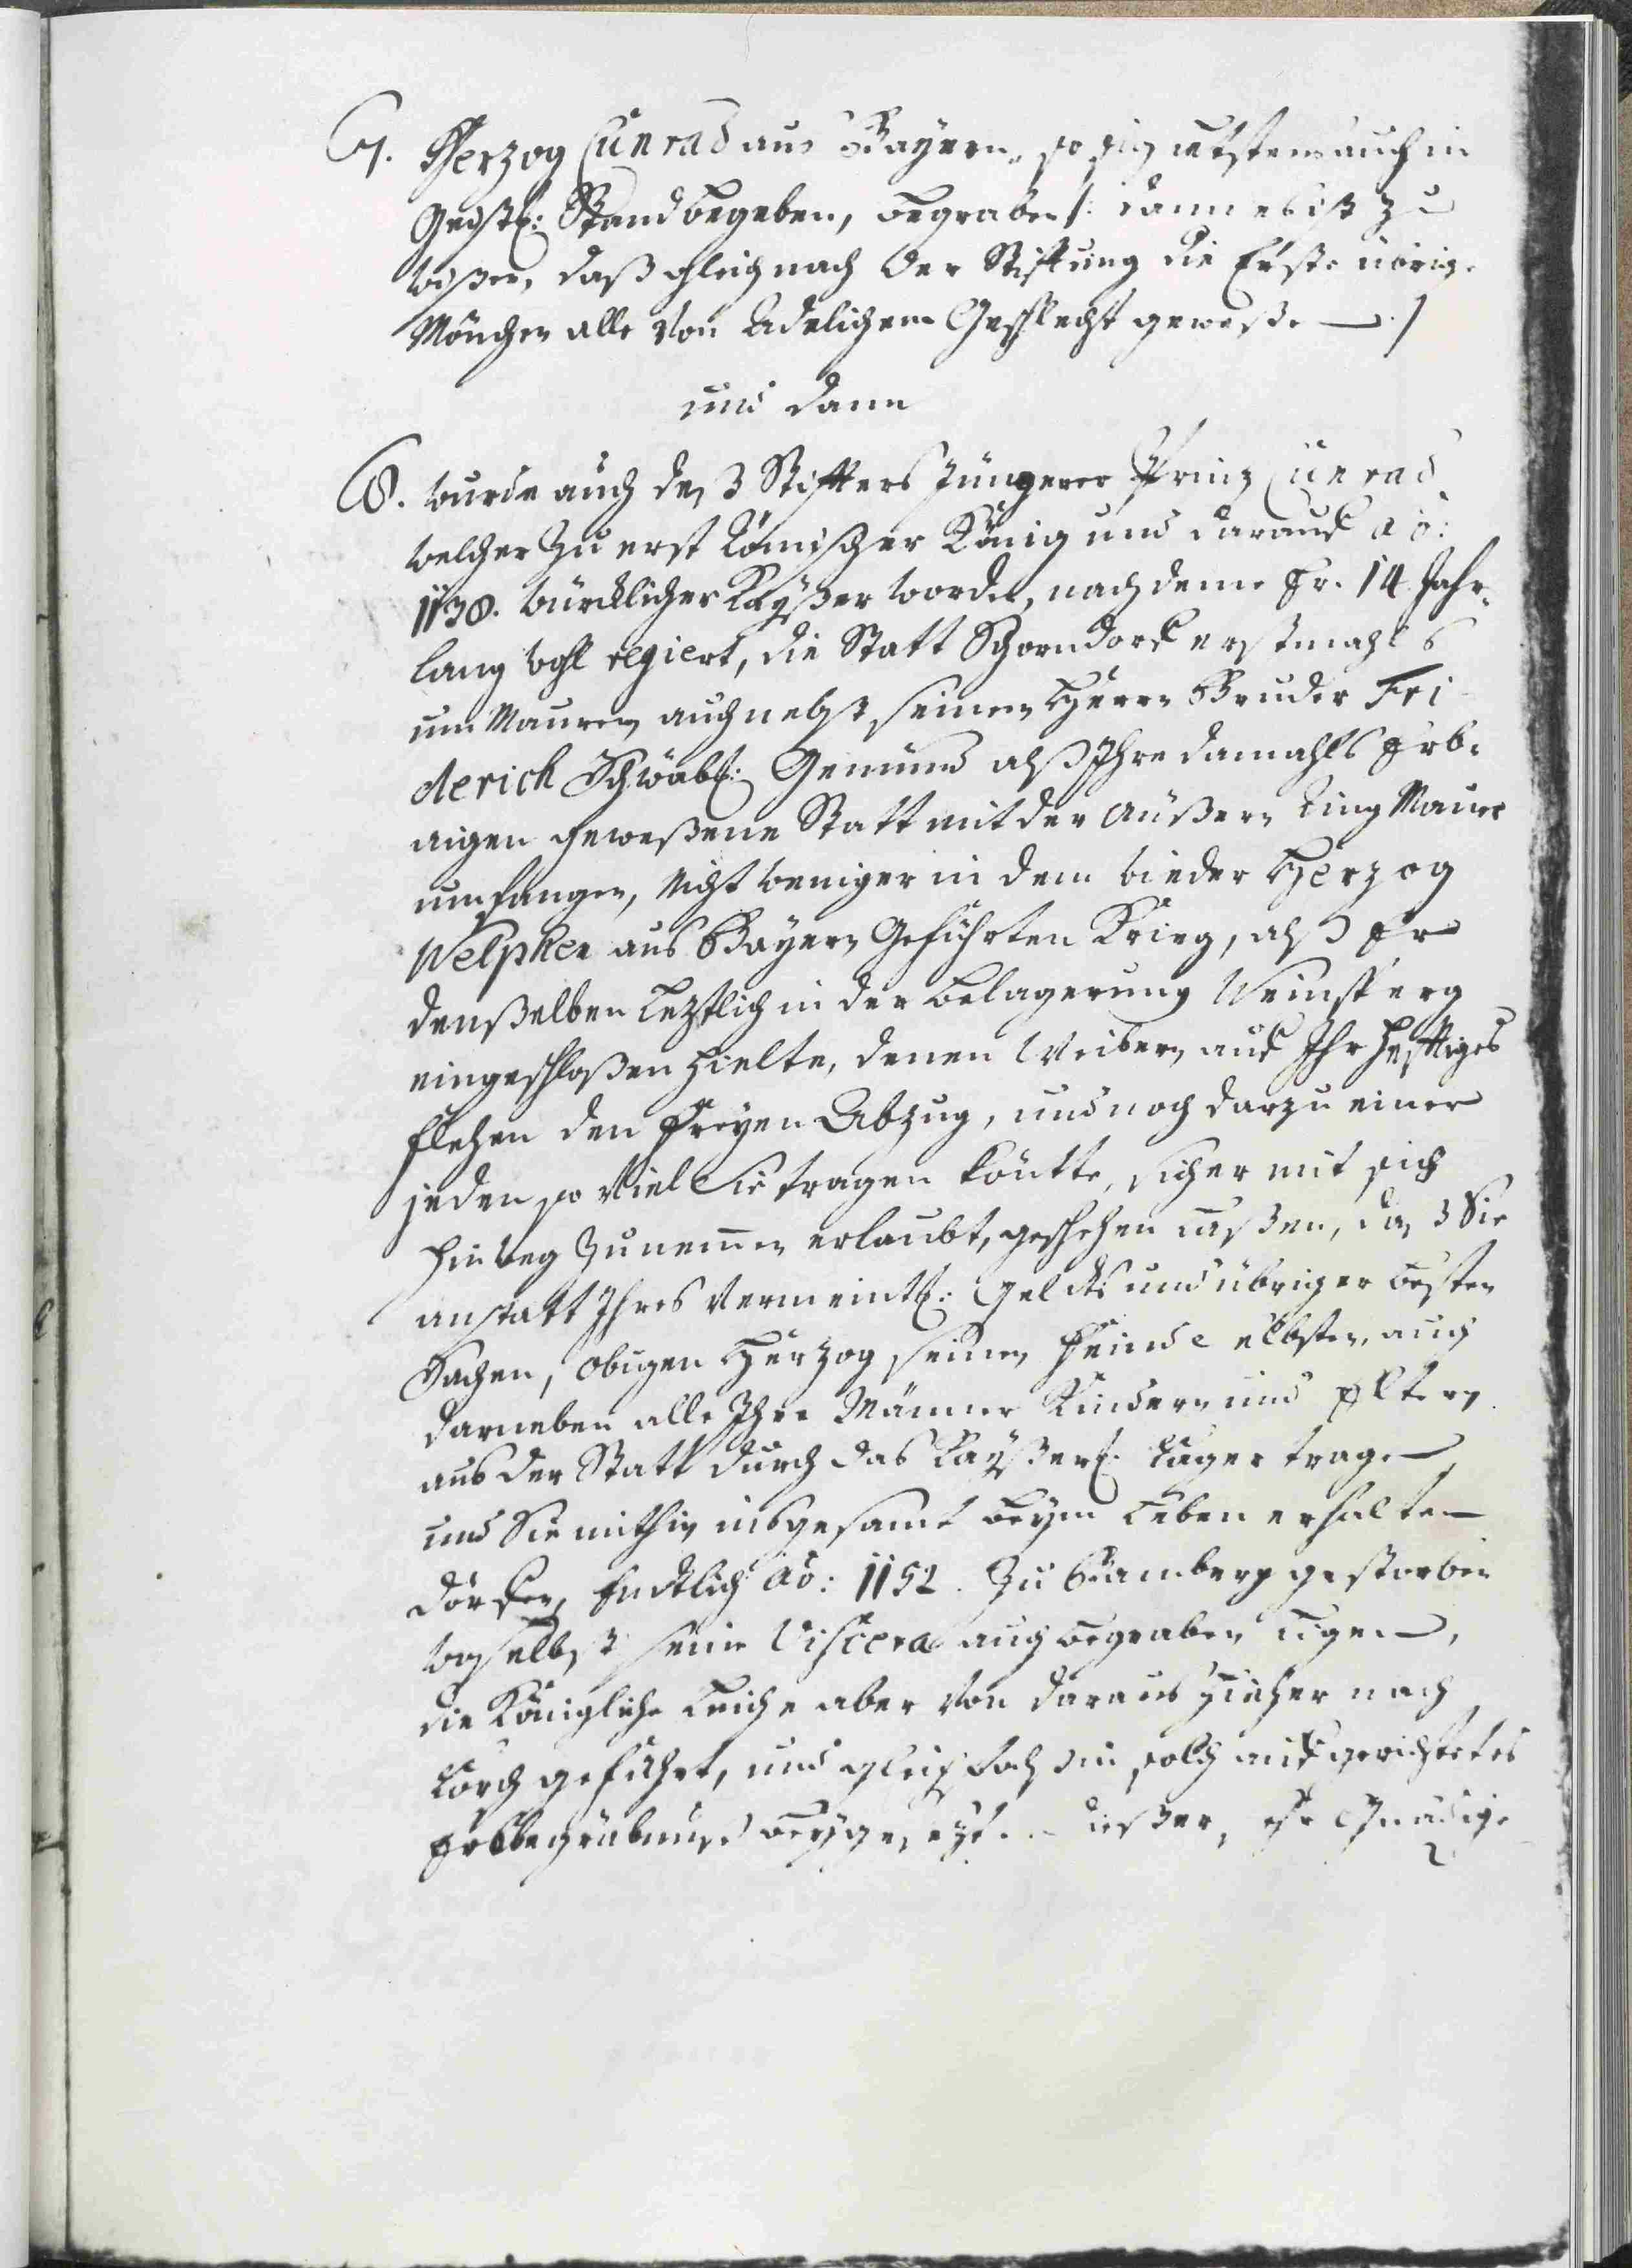 7. Herzog Cunrad aus Bayern, so sich letstens auch in
Geistl: Stand begeben, begraben /: dann es ist zu
wißen, daß gleich nach der Stifftung die Erste übrige
Mönchen alle von Adelichem Geschlecht geweßen :/
und dann
8. wurde auch deß Stiffters Jüngerer Prinz Cunrad
welcher zu erst Römischer König und darauf aõ:
1138. würcklicher Kayßer worden, nach deme Er 14 Jahr
lang wohl regiert, die Statt Schorndorf erstmahls
um Mauren, auch nebst seinem Herrn Bruder Fri
derich Schwäb: Gemünd alß Ihre damahls Erb-
aigen geweßene Statt mit der äußern Ring Maure
umfangen, nicht weniger in dem wieder Herzog
Welphen aus Bayern geführten Krieg, alß Er
denßelben leztlich in der belagerung Weinsperg
eingeschloßen hielte, denen Weibern auf Ihr hefftiges
flehen den freyen Abzug, und noch darzu einer
jeden so viel Sie tragen könte, sicher mit sich
hinweg zunemen erlaubt, geschehen laßen, daß Sie
anstatt Ihres vermeintl: gelds und übriger besten
Sachen, obigen Herzog seinen Feind selbsten, auch
darneben alle Ihre Männer Kindern und Eltern
aus der Statt durch das Kayßerl: Lager tragen,
und Sie mithin insgesamt beym Leben erhalten
dörfen, Endtlich aõ: 1152. zu Bamberg gestorben
woselbst seine Viscera auch begraben ligen,
die Königliche Leiche aber von daraus hieher nach
Lorch geführt, und gleichfals in solch aufgerichtetes
Erbbegräbnuß beygesezt. dießer, sehr Gnädige